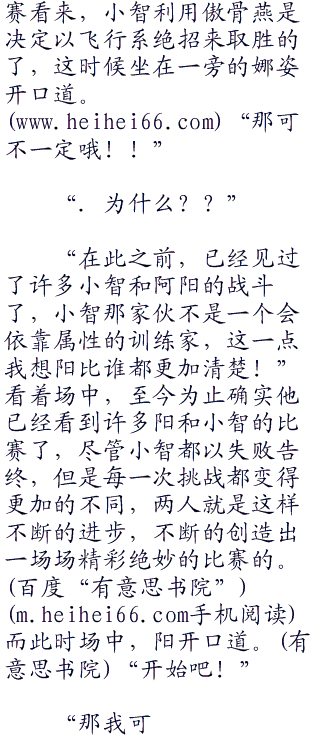 赛看来，小智利用傲骨燕是
决定以飞行系绝招来取胜的
了，这时候坐在一旁的娜姿
开口道。
(www.heihei66.com)“那可
不一定哦！！”
“．为什么？？”
“在此之前，已经见过
了许多小智和阿阳的战斗
了，小智那家伙不是一个会
依靠属性的训练家，这一点
我想阳比谁都更加清楚！”
看着场中，至今为止确实他
已经看到许多阳和小智的比
赛了，尽管小智都以失败告
终，但是每一次挑战都变得
更加的不同，两人就是这样
不断的进步，不断的创造出
一场场精彩绝妙的比赛的。
(百度“有意思书院”)
(m.heihei66.com手机阅读)
而此时场中，阳开口道。(有
意思书院)“开始吧！”
“那我可